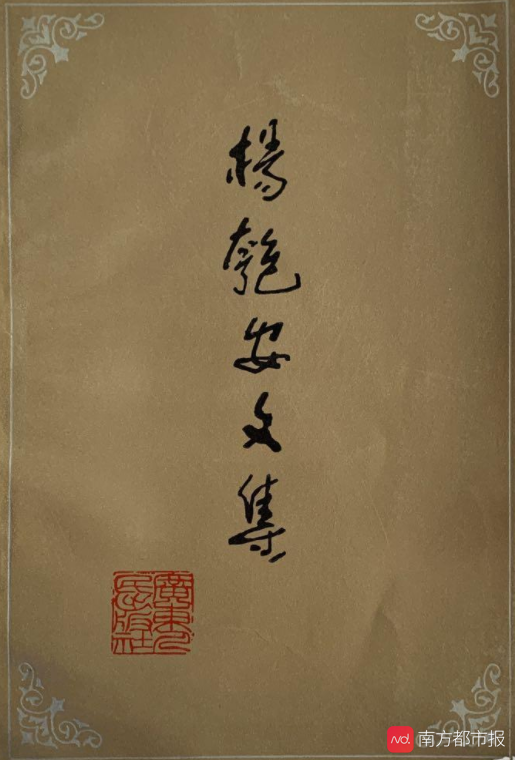 楊匏安文集
廣東人
民出版社
南方都市报